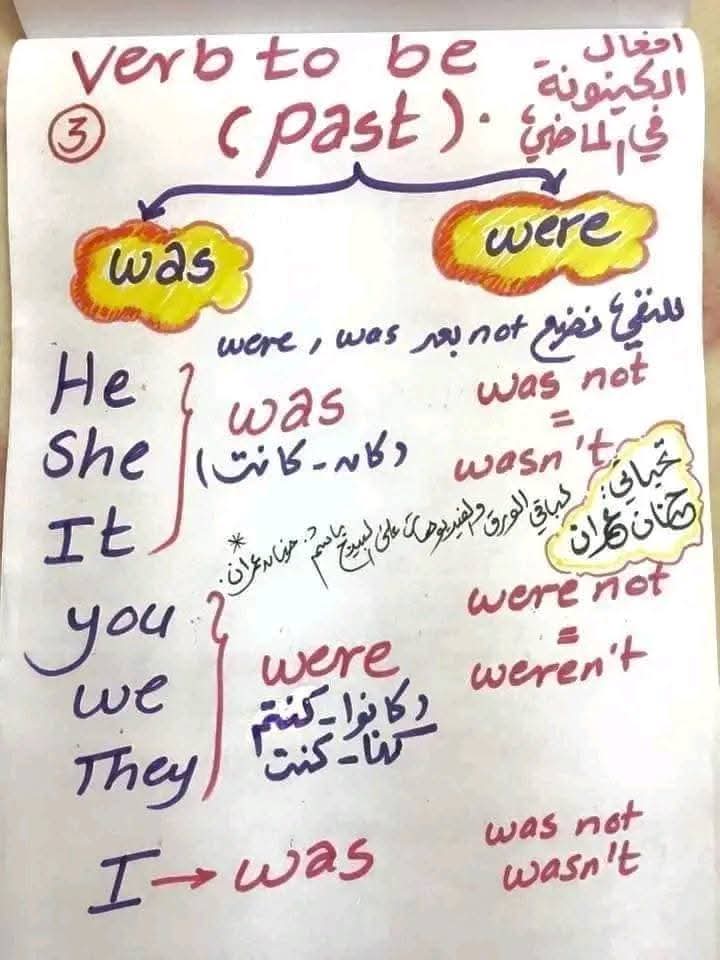 Verb to be
(past).
افعال
الكينونة
في الماضي
3
was
were
للنفي نضع not بعد were , was
He
She
It
was
(كان - كانت)
was not
=
wasn't
تحياتي:
حنان عمران
* لباقي الورق والفيديوهات على البيدج باسم د. حنان عمران.
you
we
They
were
كانوا - كنتم
كنا - كنت
were not
=
weren't
I → was
was not
wasn't